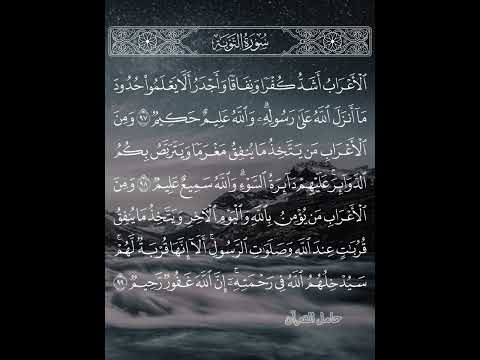 سُورَةُ التَّوْبَةِ
ٱلْأَعْرَابُ أَشَدُّ كُفْرًا وَنِفَاقًا وَأَجْدَرُ أَلَّا يَعْلَمُوا۟ حُدُودَ
مَآ أَنزَلَ ٱللَّهُ عَلَىٰ رَسُولِهِۦ ۗ وَٱللَّهُ عَلِيمٌ حَكِيمٌ ٩٧ وَمِنَ
ٱلْأَعْرَابِ مَن يَتَّخِذُ مَا يُنفِقُ مَغْرَمًا وَيَتَرَبَّصُ بِكُمُ
ٱلدَّوَآئِرَ ۚ عَلَيْهِمْ دَآئِرَةُ ٱلسَّوْءِ ۗ وَٱللَّهُ سَمِيعٌ عَلِيمٌ ٩٨ وَمِنَ
ٱلْأَعْرَابِ مَن يُؤْمِنُ بِٱللَّهِ وَٱلْيَوْمِ ٱلْـَٔاخِرِ وَيَتَّخِذُ مَا يُنفِقُ
قُرُبَـٰتٍ عِندَ ٱللَّهِ وَصَلَوَٰتِ ٱلرَّسُولِ ۚ أَلَآ إِنَّهَا قُرْبَةٌ لَّهُمْ ۚ
سَيُدْخِلُهُمُ ٱللَّهُ فِى رَحْمَتِهِۦٓ ۗ إِنَّ ٱللَّهَ غَفُورٌ رَّحِيمٌ ٩٩
حامل القرآن